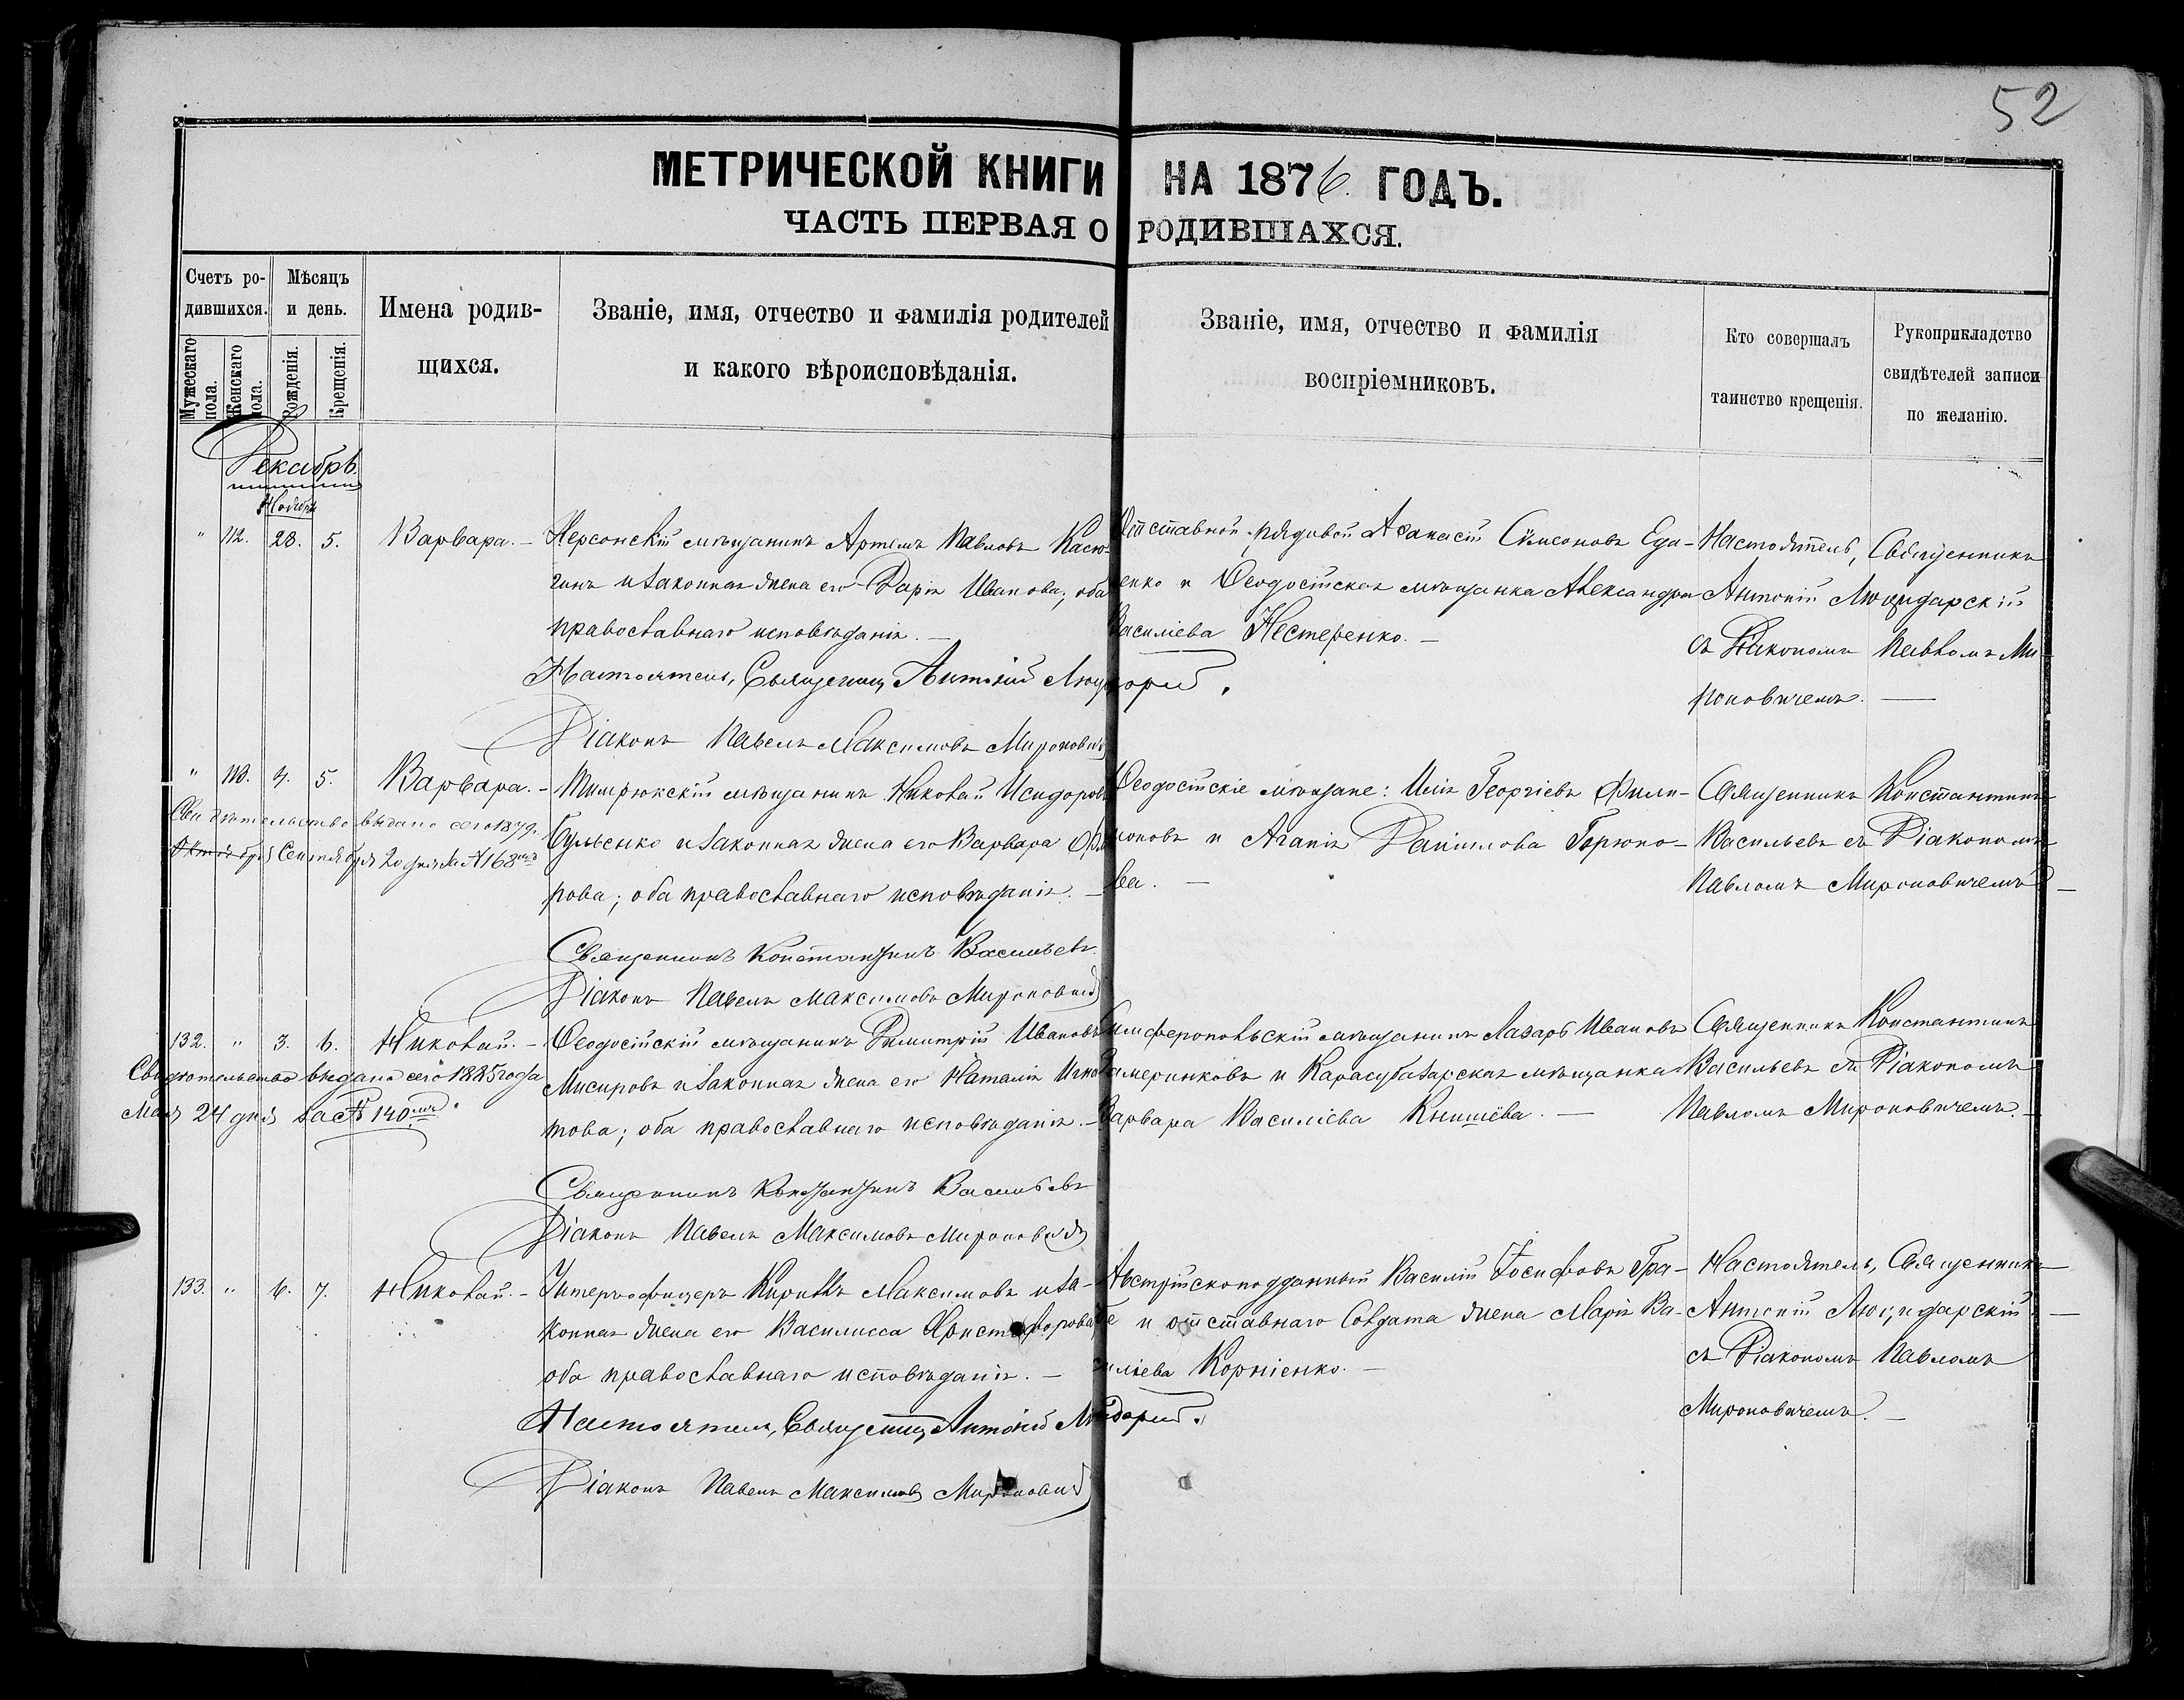 52
МЕТРИЧЕСКОЙ КНИГИ НА 1876. ГОДЪ.
ЧАСТЬ ПЕРВАЯ О РОДИВШАХСЯ.
Счетъ ро-
дившихся.
Мужескаго пола.
Женскаго пола.
Мѣсяцъ
и день.
Рожденія.
Крещенія.
Имена родив-
щихся.
Званіе, имя, отчество и фамилія родителей
и какого вѣроисповѣданія.
Званіе, имя, отчество и фамилія
воспріемниковъ.
Кто совершалъ
таинство крещенія.
Рукоприкладство
свидѣтелей записи
по желанію.
Декабрь.
Ноября
" 112. 28. 5. Варвара. – Херсонскій мѣщанинъ Артемъ Павловъ
и законная жена его Дарія Иванова; оба
православнаго исповѣданія. –
Отставной рядовой Аѳанасій Симеоновъ Еда-
енко и Ѳеодосійская мѣщанка Александра
Василіева Нестеренко. –
Настоятель, Священникъ
Антоній
съ Діакономъ Павломъ Ми-
роновичемъ. –
Настоятель, Священникъ Антоній
Діаконъ Павелъ Максимовъ Мироновичъ
" 113. 4. 5. Варвара. – Темрюкскій мѣщанинъ Николай Исидоровъ
Бульенко и законная жена его Варвара
рова; оба православнаго исповѣданія. –
Свидѣтельство выдано сего 1879 г.
Октября Сентября 20 дня за № 168мъ
Ѳеодосійскіе мѣщане: Илія Георгіевъ Фили-
моновъ и Агапія Даніилова Горюно-
ва. –
Священникъ Константинъ
Васильевъ съ Діакономъ
Павломъ Мироновичемъ –
Священникъ Константинъ Васильевъ
Діаконъ Павелъ Максимовъ Мироновичъ
132. " 3. 6. Николай. – Ѳеодосійскій мѣщанинъ Димитрій Ивановъ
Мисировъ и законная жена его Наталія Игна-
това; оба православнаго исповѣданія. –
Свидѣтельство выдано сего 1885 года
Мая 24 дня за № 140мъ.
Симферопольскій мѣщанинъ Лазарь Ивановъ
и Карасубазарская мѣщанка
Варвара Василіева Кнышева. –
Священникъ Константинъ
Васильевъ съ Діакономъ
Павломъ Мироновичемъ. –
Священникъ Константинъ Васильевъ
Діаконъ Павелъ Максимовъ Мироновичъ
133. " 6. 7. Николай. – Унтеръ-офицеръ Кириллъ Максимовъ и за-
конная жена его Василисса Христофорова
оба православнаго исповѣданія. –
Австрійскоподданный Василій Іосифовъ Гра-
и отставнаго Солдата жена Марія Ва-
силіева Корніенко. –
Настоятель, Священникъ
Антоній
съ Діакономъ Павломъ
Мироновичемъ. –
Настоятель, Священникъ Антоній
Діаконъ Павелъ Максимовъ Мироновичъ